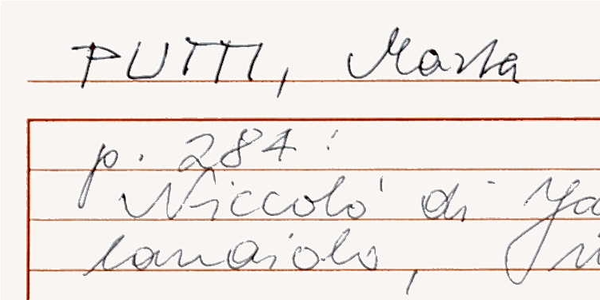 PUTTI, Marta
p. 284:
Niccolò di
lanaiolo,